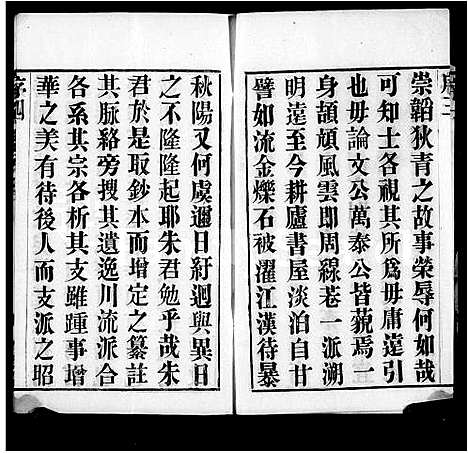 崇韜狄青之故事榮辱何如哉
可知士各視其所爲毋庸遠引
也毋論文公萬泰公皆藐焉一
身頡頏風雲即周綠巷一派溯
明遠至今耕廬書屋淡泊自甘
譬如流金爍石被濯江漢待暴
秋陽又何虞邇日紆迴與異日
之不隆隆起耶朱君勉乎哉朱
君於是取鈔本而增定之纂註
其脉絡旁搜其遺逸川流派合
各系其宗各析其支雖踵事增
華之美有待後人而支派之昭
序四